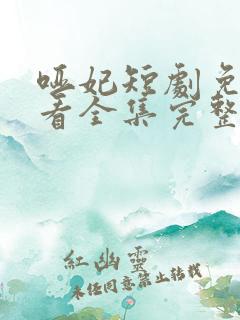 哑妃短劇免
看全集完整
紅幽靈
未经同意禁止转载